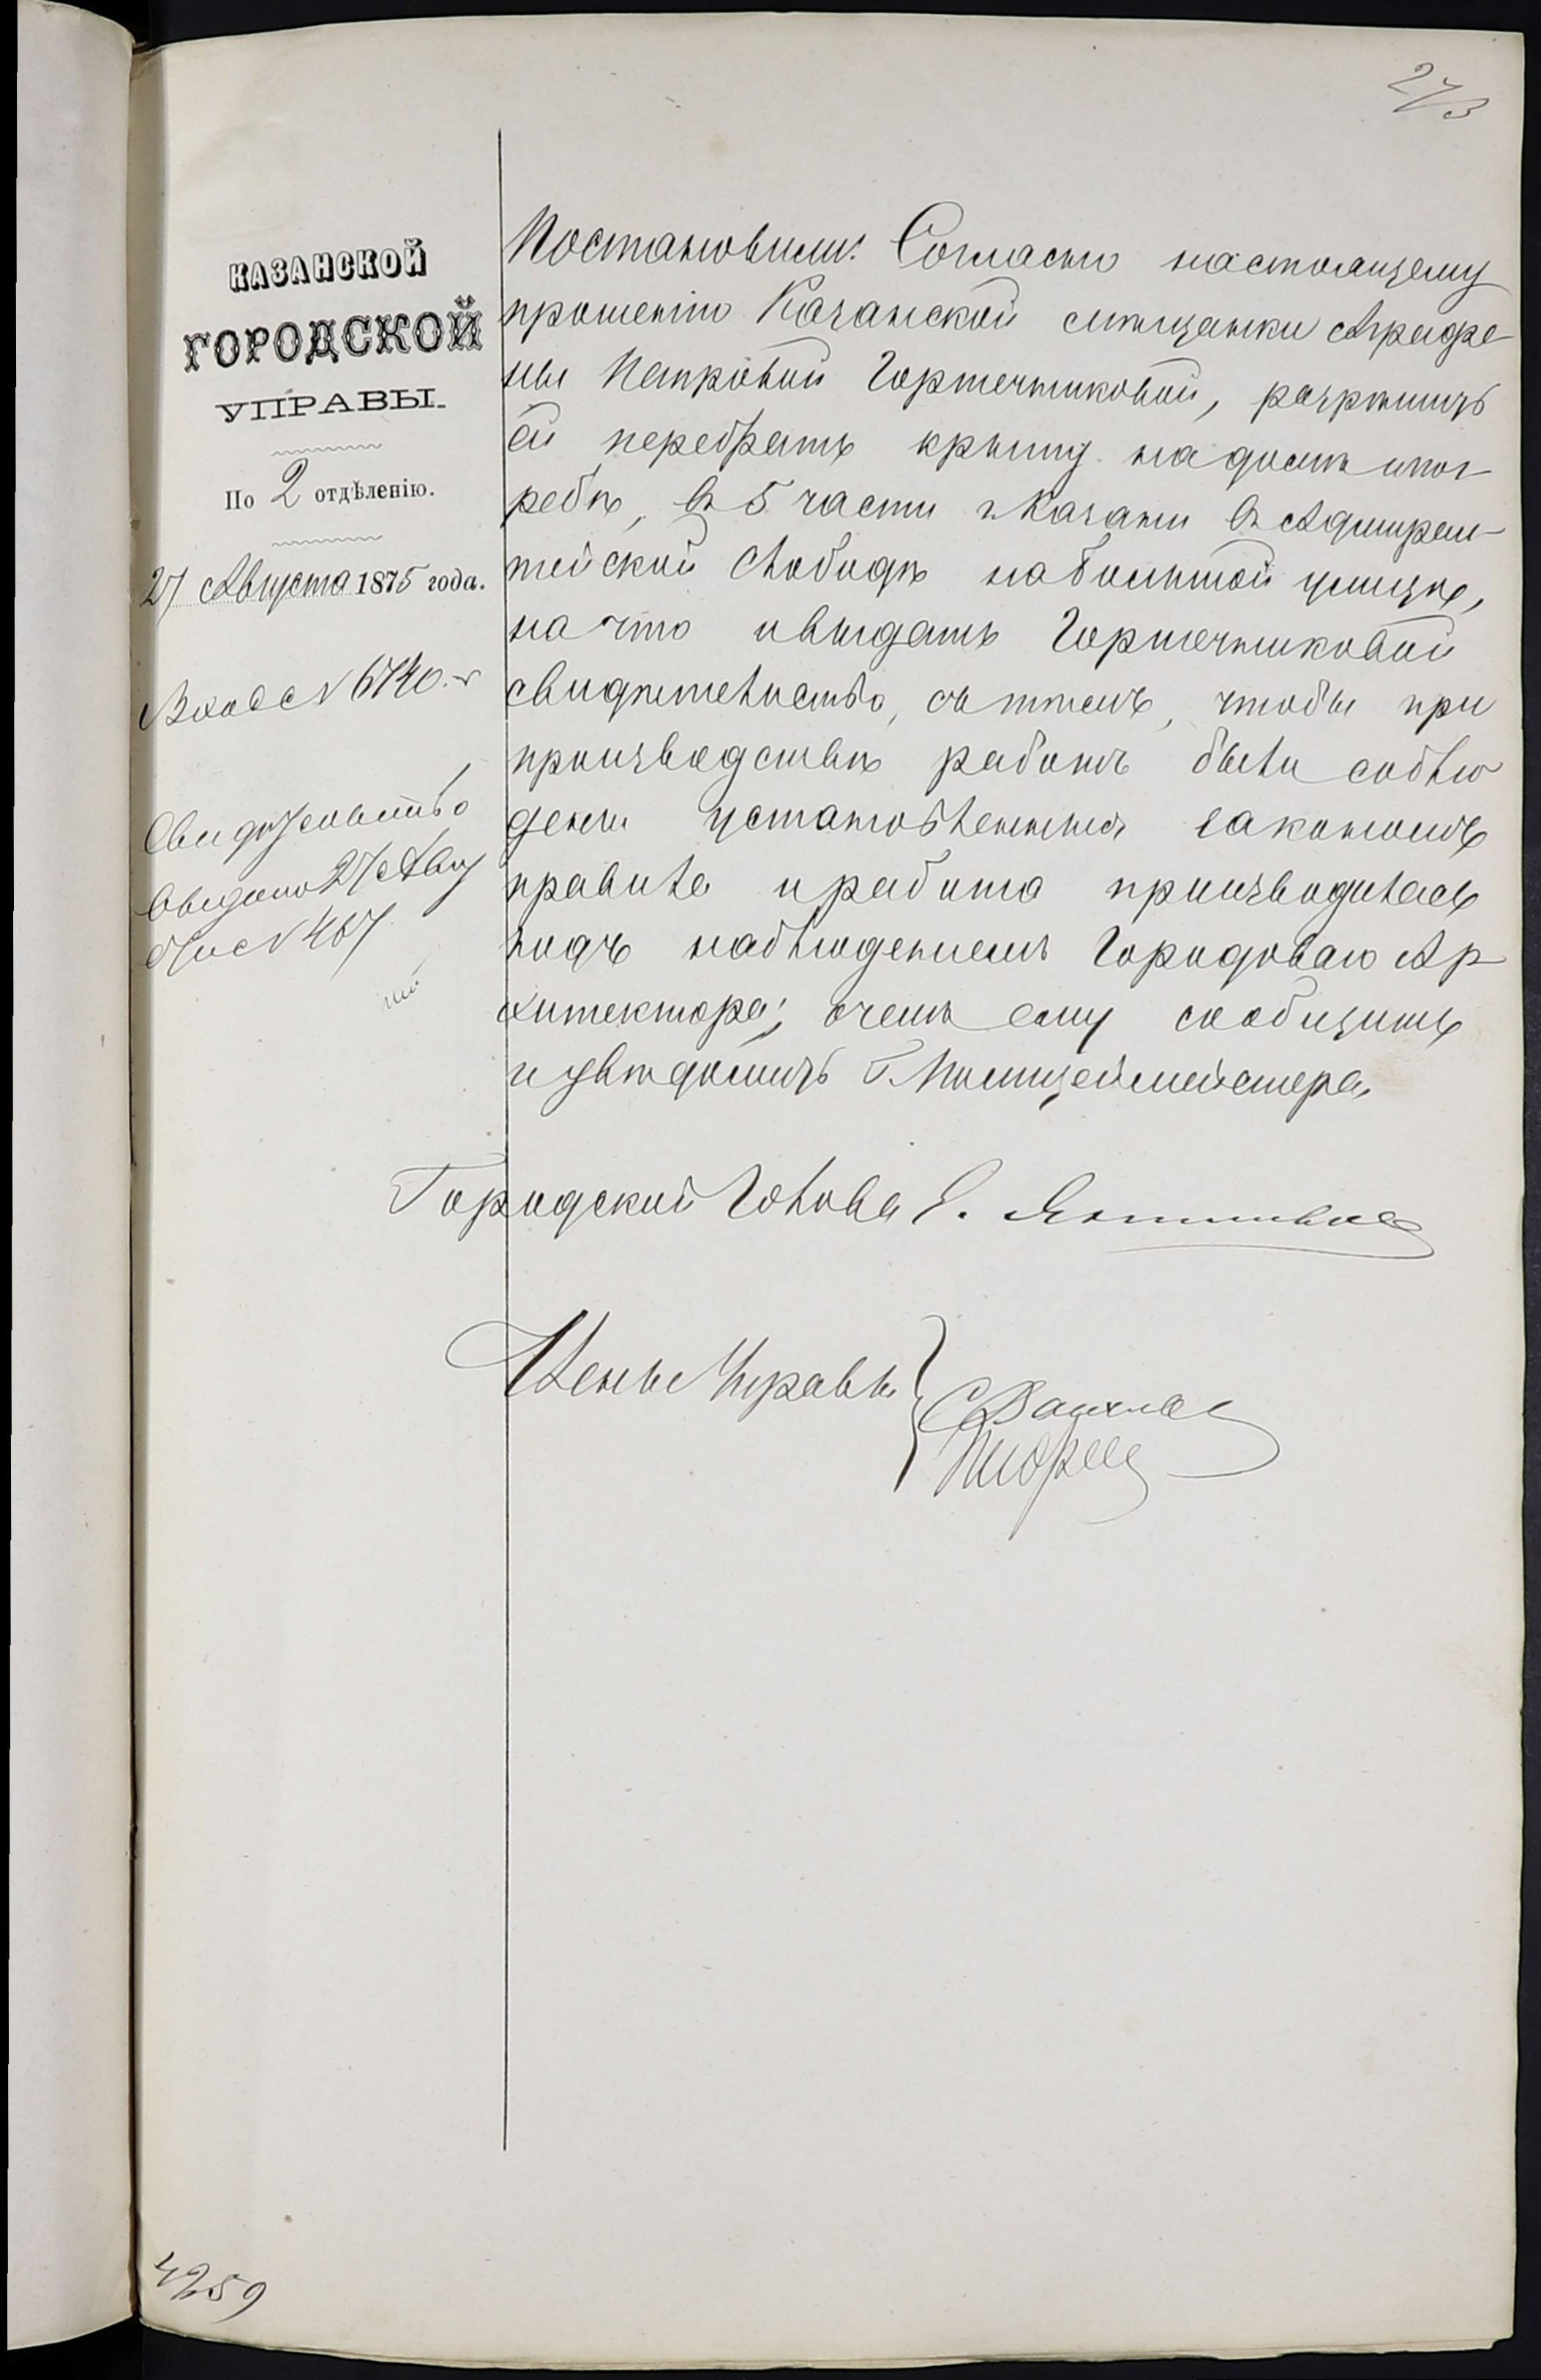 273
КАЗАНСКОЙ
ГОРОДСКОЙ
УПРАВЫ.
По 2 отдѣленію.
27 Августа 1875 года.
Вход № 6740.
Свидѣтельство
выдано 27 Авгу
за № 467
Постановили: Согласно настоящему
прошенію Казанской мѣщанки Аграфе-
ны Петровой Горшечниковой, разрѣшить
ей перебрать крышу на домѣ и пог-
ребѣ, въ 5 части г. Казани въ Адмирал-
тейской Слободѣ на большой улицѣ,
на что и выдать Горшечниковой
свидѣтельство, съ тѣмъ, чтобы при
производствѣ работъ были соблю
дены установленныя закономъ
правила и работа производилась
подъ наблюденіемъ Городоваго Ар-
хитектора; о чемъ ему сообщить
и увѣдомить Г. Полицеймейстера.
Городской Голова Е.
Члены Управы
4259